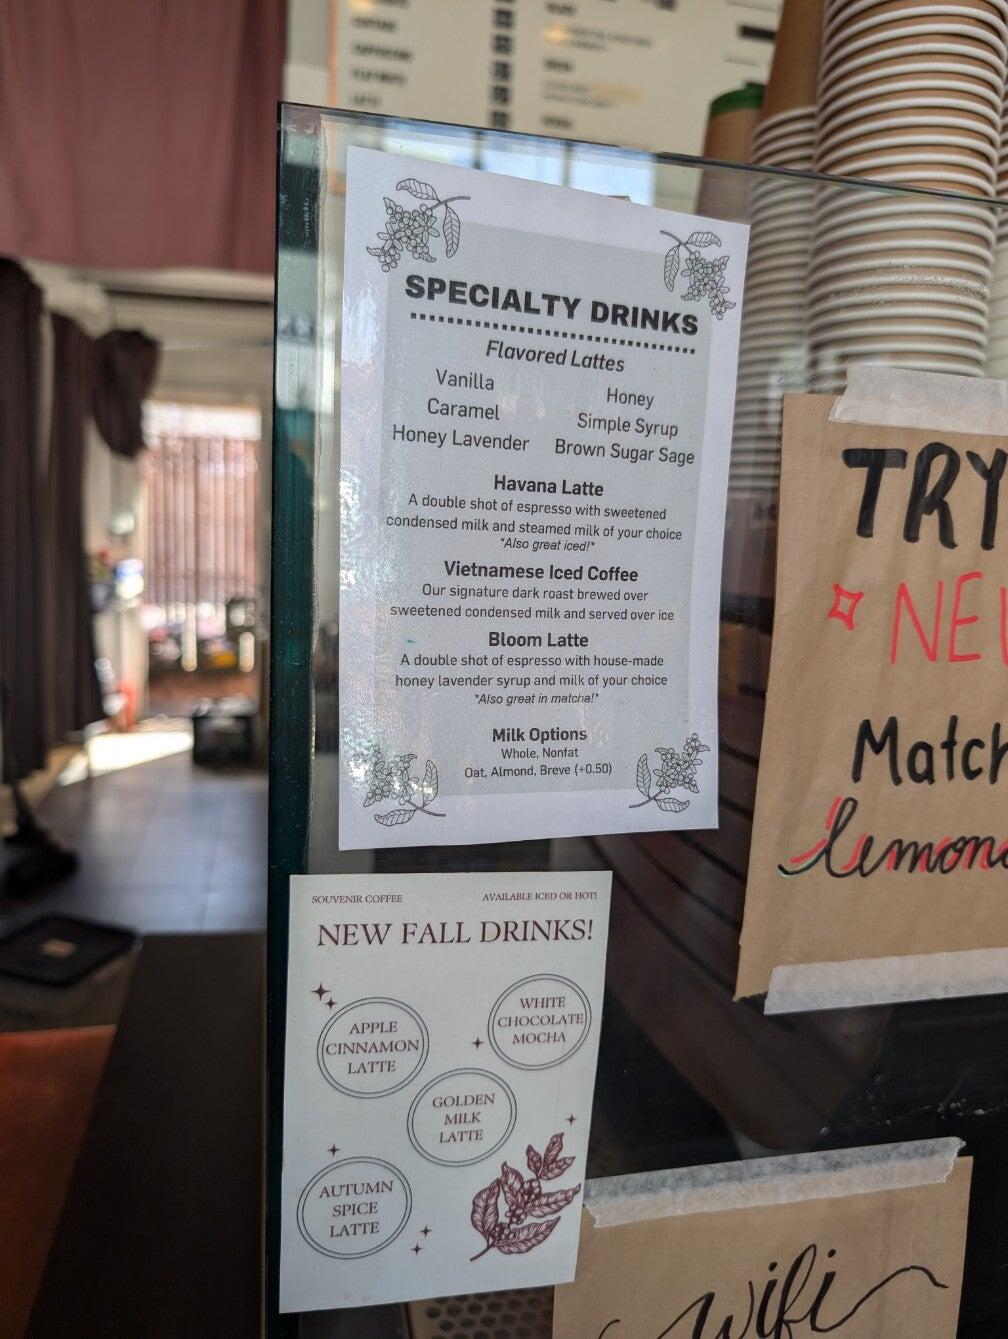 SPECIALTY DRINKS
Flavored Lattes
Vanilla
Honey
Caramel
Simple Syrup
Honey Lavender
Brown Sugar Sage
Havana Latte
A double shot of espresso with sweetened
condensed milk and steamed milk of your choice
*Also great iced!*
Vietnamese Iced Coffee
Our signature dark roast brewed over
sweetened condensed milk and served over ice
Bloom Latte
A double shot of espresso with house-made
honey lavender syrup and milk of your choice
*Also great in matcha!*
Milk Options
Whole, Nonfat
Oat, Almond, Breve (+0.50)
SOUVENIR COFFEE
AVAILABLE ICED OR HOT!
NEW FALL DRINKS!
APPLE
CINNAMON
LATTE
WHITE
CHOCOLATE
MOCHA
GOLDEN
MILK
LATTE
AUTUMN
SPICE
LATTE
TRY
NEW
Match
lemona
wifi